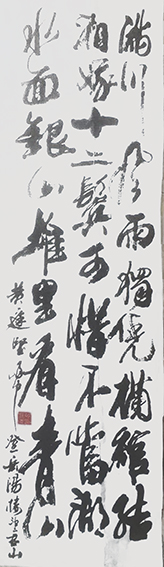 滿川风雨獨凭欄綰结
湘娥十二鬟可惜不當湖
水面銀山堆里看青山
黄庭堅雨中
登岳陽樓望君山